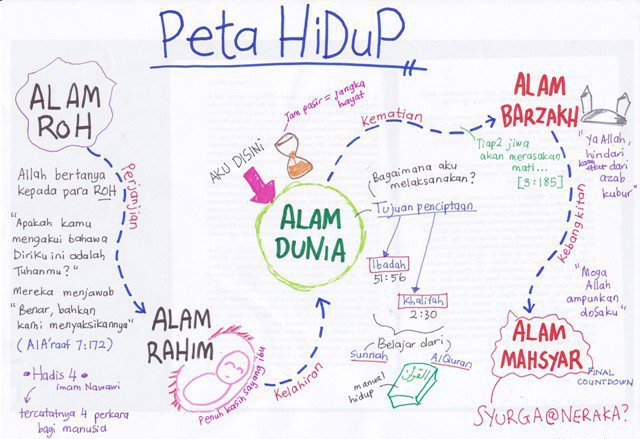 Peta HiDuP
ALAM
ROH
Allah bertanya
kepada para ROH
"Apakah kamu
mengakui bahawa
Diriku ini adalah
Tuhanmu?"
Mereka menjawab
"Benar, bahkan
kami menyaksikannya"
(Al A'raaf 7:172)
• Hadis 4 •
imam Nawawi
tercatatnya 4 perkara
bagi manusia
Perjanjian
ALAM
RAHIM
Penuh kasih sayang ibu
Kelahiran
AKU DISINI
Jam pasir = jangka
hayat
ALAM
DUNIA
Bagaimana aku
melaksanakan?
Tujuan penciptaan
Ibadah
51:56
Khalifah
2:30
Belajar dari
Sunnah
Al Quran
manual
hidup
القرآن
Kematian
Tiap2 jiwa
akan merasakan
mati...
[3:185]
ALAM
BARZAKH
"Ya Allah,
hindari
kami dari
azab
kubur
Kebangkitan
"Moga
Allah
ampunkan
dosaku"
ALAM
MAHSYAR
FINAL
COUNTDOWN
SYURGA@NERAKA?